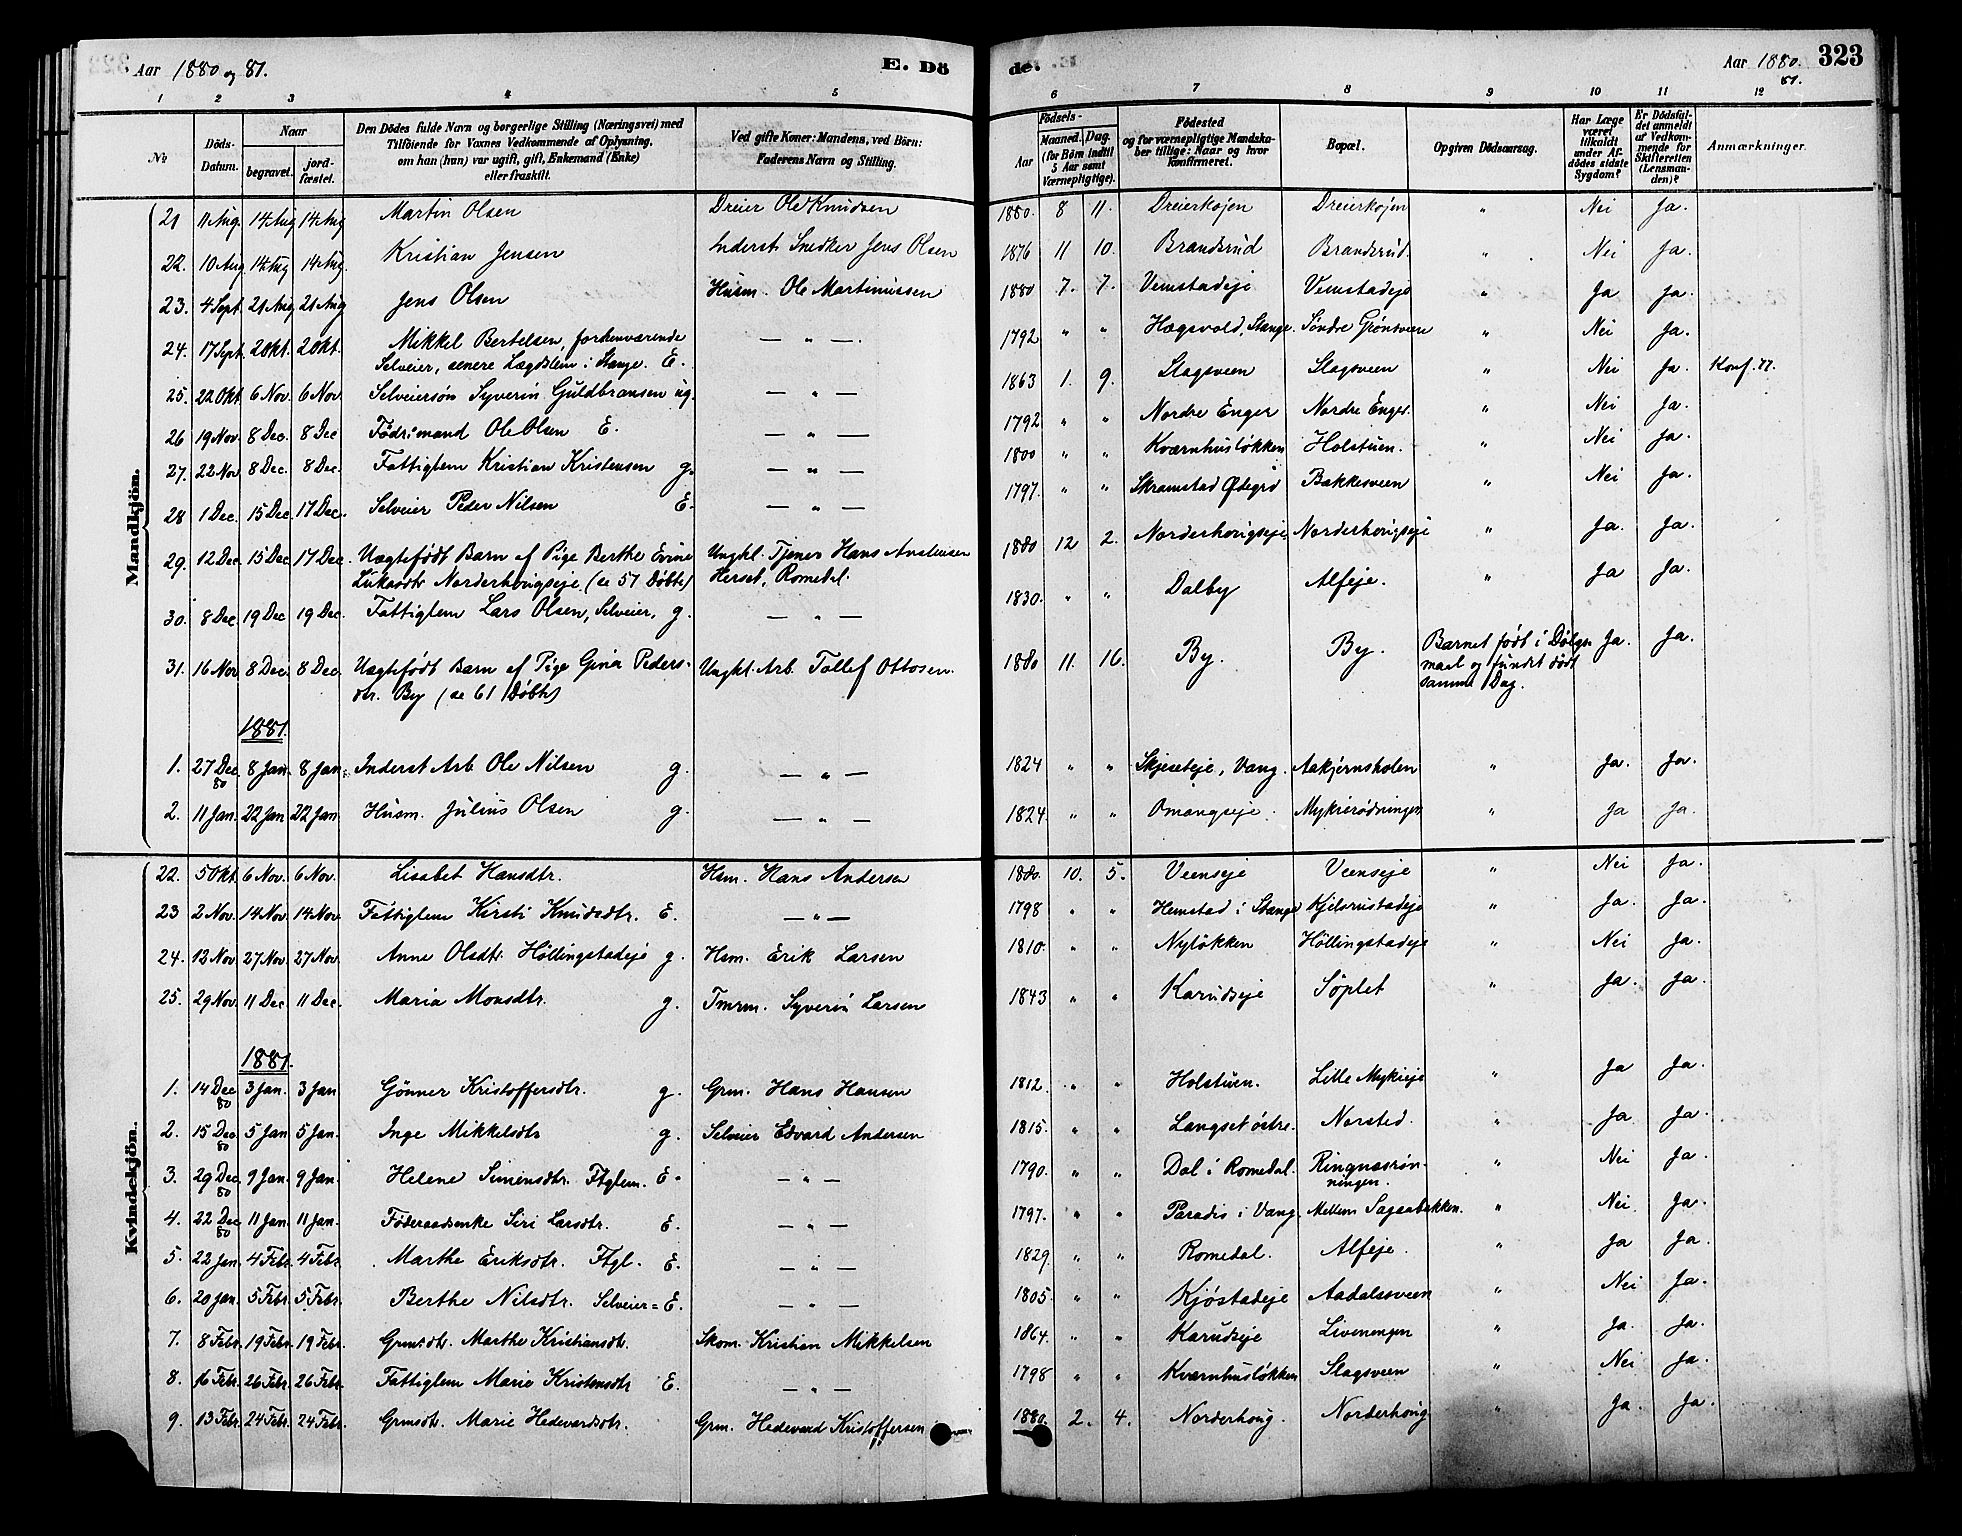 Aar 1880 og 81. E. Dö de. Aar 1880. 81. 323
1 2 3 4 5 6 7 8 9 10 11 12
No Döds-Datum. Naar begravet. jord-fæstet. Den Dödes fulde Navn og borgerlige Stilling (Næringsvei) med Tilföiende for Voxnes Vedkommende af Oplysning, om han (hun) var ugift, gift, Enkemand (Enke) eller fraskilt. Ved gifte Koner: Mandens, ved Börn: Faderens Navn og Stilling. Födsels- Aar Maaned. Dag. (for Börn indtil 5 Aar samt Værnepligtige). Födested og for værnepligtige Mandskaber tillige: Naar og hvor konfirmeret. Bopæl. Opgiven Dödsaarsag. Har Læge været tilkaldt under Afdödes sidste Sygdom? Er Dödsfaldet anmeldt af Vedkommende for Skifteretten (Lensmanden)? Anmærkninger.
Mandkjön.
21 11 Aug 14 Aug 14 Aug Martin Olsen Dreier Ole Knudsen 1880. 8 11. Dreierkojen Dreierkojen " Nei Ja.
22. 10 Aug 14 Aug 14 Aug. Kristian Jensen Inderst Snedker Jens Olsen 1876 11 10. Brandsrud Brandsrud. " Nei Ja.
23. 4 Sept. 21 Aug 21 Aug Jens Olsen Husm. Ole Martinussen 1880 7. 7. Vemstadeje Vemstadeje " Ja Ja.
24. 17 Sept. 2 Okt. 2 Okt. Mikkel Bertelsen, forhenværende — " —. 1792 " " Hægsvold, Stange. Søndre Grønsveen " Nei Ja.
Selveier, senere Lægdslem i Stange. E.
25. 22 Okt. 6 Nov. 6 Nov. Selveiersøn Syverin Guldbransen ug. — " — 1863 1. 9. Slagsveen Slagsveen " Nei Ja. Konf. 77.
26 19 Nov. 8 Dec. 8 Dec Födsimand Ole Olsen E. — " — 1792 " " Nordre Enger Nordre Enger. " Nei Ja.
27. 22 Nov 8 Dec. 8 Dec. Fattiglem Kristian Kristensen g. — " — 1800 " " Kværnhusløkken Holstuen. " Nei Ja.
28 1 Dec. 15 Dec. 17 Dec. Selveier Peder Nilsen E. — " — 1797. " " Skramstad Ødegrd Bakkesveen " Nei Ja.
29. 12 Dec. 15 Dec. 17 Dec. Uægtefödt Barn af Pige Berthe Evine Ungkl. Tjener Hans 1880 12 2. Norderhovigseje Norderhovigseje " Ja. Ja.
Lukasdtr Norderhovigseje (se 57 Døbte) Herset, Romedal.
30. 8 Dec. 19 Dec 19 Dec. Fattiglem Lars Olsen, Selveier, g. — " — 1830. " " Dalby Alfeje. " Ja Ja.
31. 16 Nov 8 Dec. 8 Dec. Uægtefödt Barn af Pige Gina Peders- Ungkl. Arb. Tollef Ottosen. 1880 11. 16. By. By. Barnet født i Dølgs- Ja. Ja.
dtr. By (se 61 Døbte) maal og fundet dødt
samme Dag.
1881.
1. 27 Dec 80 8 Jan. 8 Jan. Inderst Arb. Ole Nilsen g. — " — 1824 " " Skjeseteje, Vang. Aakjernsholen " Ja. Ja.
2. 11 Jan. 22 Jan 22 Jan. Husm. Julius Olsen g. — " — 1824. " " Omangseje. Mykrerødningen " Ja Ja.
Kvindekjön.
22. 5 Okt. 6 Nov. 6 Nov. Lisabet Hansdtr. Hsm. Hans Andersen 1880. 10. 5. Veenseje Veenseje " Nei Ja.
23 2 Nov. 14 Nov. 14 Nov. Fattiglem Kirsti Knudsdtr. E. — " — 1798 " " Hemstad i Stange Kjelsrustadeje " Ja. Ja.
24. 12 Nov 27 Nov. 27 Nov. Anne Olsdtr. Höllingstadeje g. Hsm. Erik Larsen 1810. " " Nyløkken Höllingstadeje " Nei Ja.
25. 29 Nov. 11 Dec 11 Dec. Maria Monsdtr. g. Tmrm. Syverin Larsen 1843 " " Karudseje Söplet " Ja. Ja.
1881.
1. 14 Dec 80 3 Jan. 3 Jan Gönner Kristoffersdtr. g. Grm. Hans Hansen 1812. " " Holstuen. Lille Mykreje " Ja Ja.
2. 15 Dec 80 5 Jan 5 Jan. Inge Mikkelsdtr g. Selveier Edvard Andersen 1815. " " Langset østre. Norsted. " Ja. Ja.
3. 29 Dec. 80 9 Jan. 9 Jan. Helene Simensdtr. Ftglem. E. — " — 1790. " " Dal i Romedal. Ringnæsrøn- " Nei Ja.
ningen.
4. 22 Dec 80 11 Jan. 11 Jan. Föderaadsenke Siri Larsdtr. E. — " — 1797. " " Paradis i Vang. Mellem Sagaabakken. " Nei. Ja.
5. 22 Jan. 4 Febr. 4 Febr. Marthe Eriksdtr. Ftgl. E. — " — 1829 " " Romedal. Alfeje. " Ja Ja.
6. 20 Jan. 5 Febr. 5 Febr. Berthe Nilsdtr. Selveier = E. — " — 1805. " " Kjøstadeje Aadalssveen " Nei Ja.
7. 8 Febr. 19 Febr. 19 Febr. Grmsdtr. Marthe Kristiansdtr. Skom. Kristian Mikkelsen 1864. " " Karudseje Livenengen " Ja. Ja.
8. 16 Febr. 26 Febr. 26 Febr. Fattiglem Marie Kristensdtr E. — " — 1798 " " Kværnhusløkken Slagsveen " Nei Ja.
9. 13 Febr. 24 Febr. 24 Febr. Grmsdtr. Marie Hedevardsdtr. Grm. Hedevard Kristoffersen 1880. 2. 4. Norderhovig. Norderhovig " Ja. Ja.